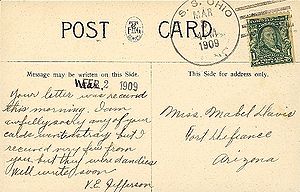 POST CARD
S. S. OHIO
MAR
1909
Message may be written on this Side.
This Side for address only.
FEB 2 1909
Your letter was received
this morning. I am
awfully sorry any of your
cards went astray but I
received my five from
you but they were dandies
Will write soon
V.E. Jefferson
Miss Mabel Davis
Fort Defiance
Arizona